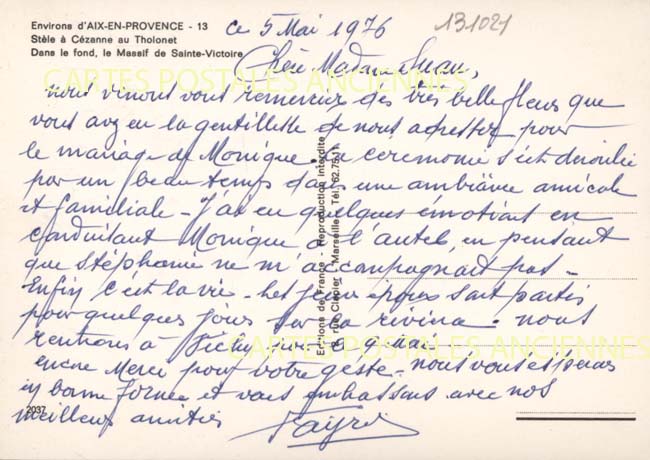 Environs d'AIX-EN-PROVENCE - 13
Stèle à Cézanne au Tholonet
Dans le fond, le Massif de Sainte-Victoire
131021
ce 5 Mai 1976
Chère Madame
CARTES POSTALES ANCIENNES
nous venons vous remercier des très belle fleurs que
vous avez eu la gentillesse de nous adresser pour
le mariage de Monique. ceremonie s'est déroulée
par un beau temps dans une ambiance amicale
et familiale - J'ai eu quelques émotions en
conduisant Monique à l'autel, en pensant
que Stéphanie ne m'accompagnait pas -
Enfin c'est la vie - Les jeunes époux sont partis
pour quelques jours sur la riviera - nous
rentrons à Vichy 9 mai.
CARTES POSTALES ANCIENNES
encore Merci pour votre geste - nous vous espérons
en bonne forme et vous embrassons avec nos
meilleurs amitiés
2037
Editions de France - Reproduction interdite
rue Clapier - Marseille - Tél.